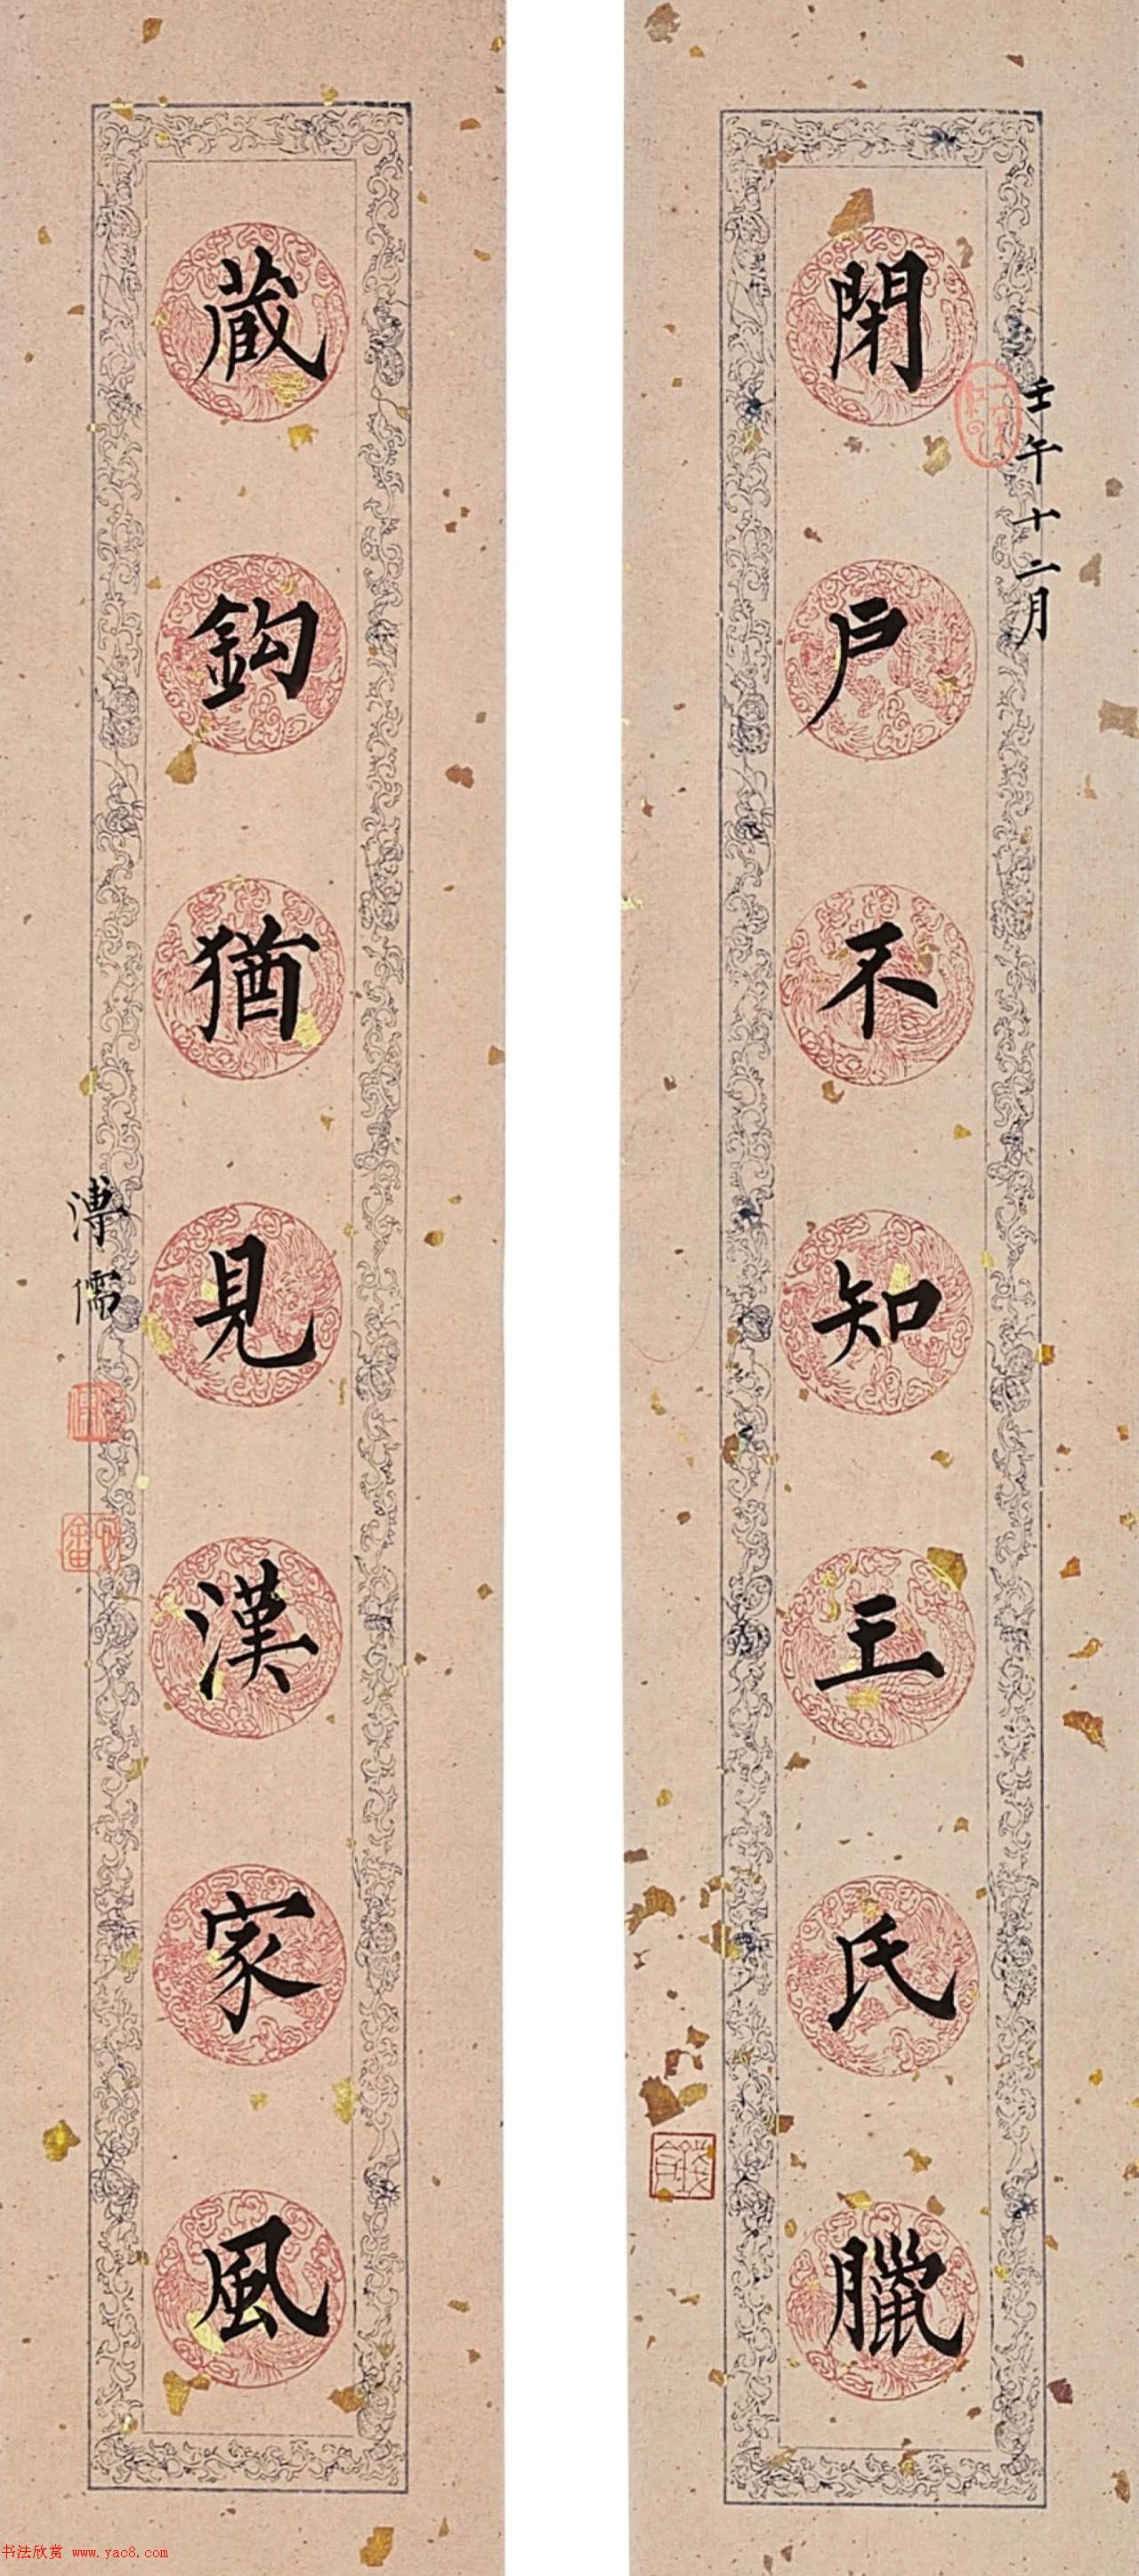 閉戶不知王氏臘
壬午十二月
蔵鈎猶見漢家風
溥儒
书法欣赏 www.yac8.com